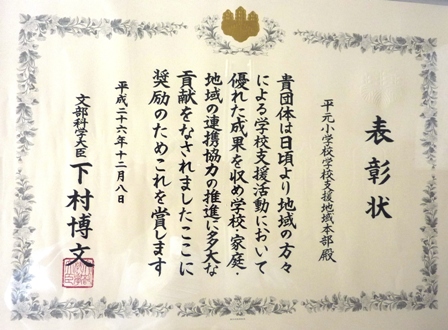 表彰状
平元小学校学校支援地域本部 殿
貴団体は日頃より地域の方々
による学校支援活動において
優れた成果を収め学校・家庭・
地域の連携協力の推進に多大な
貢献をなされましたここに
奨励のためこれを賞します
平成二十六年十二月八日
文部科学大臣 下村博文